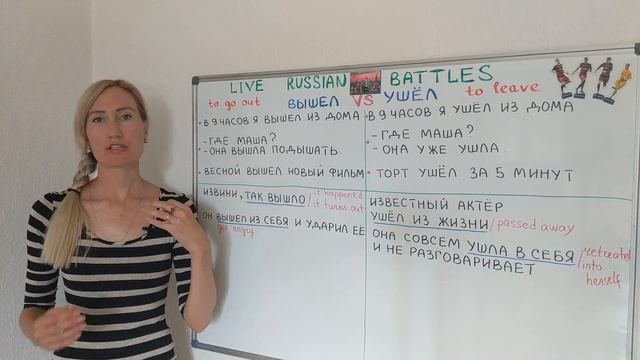 LIVE RUSSIAN BATTLES
to go out ВЫШЕЛ VS УШЁЛ to leave
• В 9 ЧАСОВ Я ВЫШЕЛ ИЗ ДОМА
- ГДЕ МАША?
- ОНА ВЫШЛА ПОДЫШАТЬ.
• ВЕСНОЙ ВЫШЕЛ НОВЫЙ ФИЛЬМ
ИЗВИНИ, ТАК ВЫШЛО / it happened
it turns out
ОН ВЫШЕЛ ИЗ СЕБЯ И УДАРИЛ ЕЁ
got angry
• В 9 ЧАСОВ Я УШЁЛ ИЗ ДОМА
- ГДЕ МАША?
- ОНА УЖЕ УШЛА.
• ТОРТ УШЁЛ ЗА 5 МИНУТ
ИЗВЕСТНЫЙ АКТЁР
УШЁЛ ИЗ ЖИЗНИ / passed away
ОНА СОВСЕМ УШЛА В СЕБЯ / retreated
И НЕ РАЗГОВАРИВАЕТ into
herself